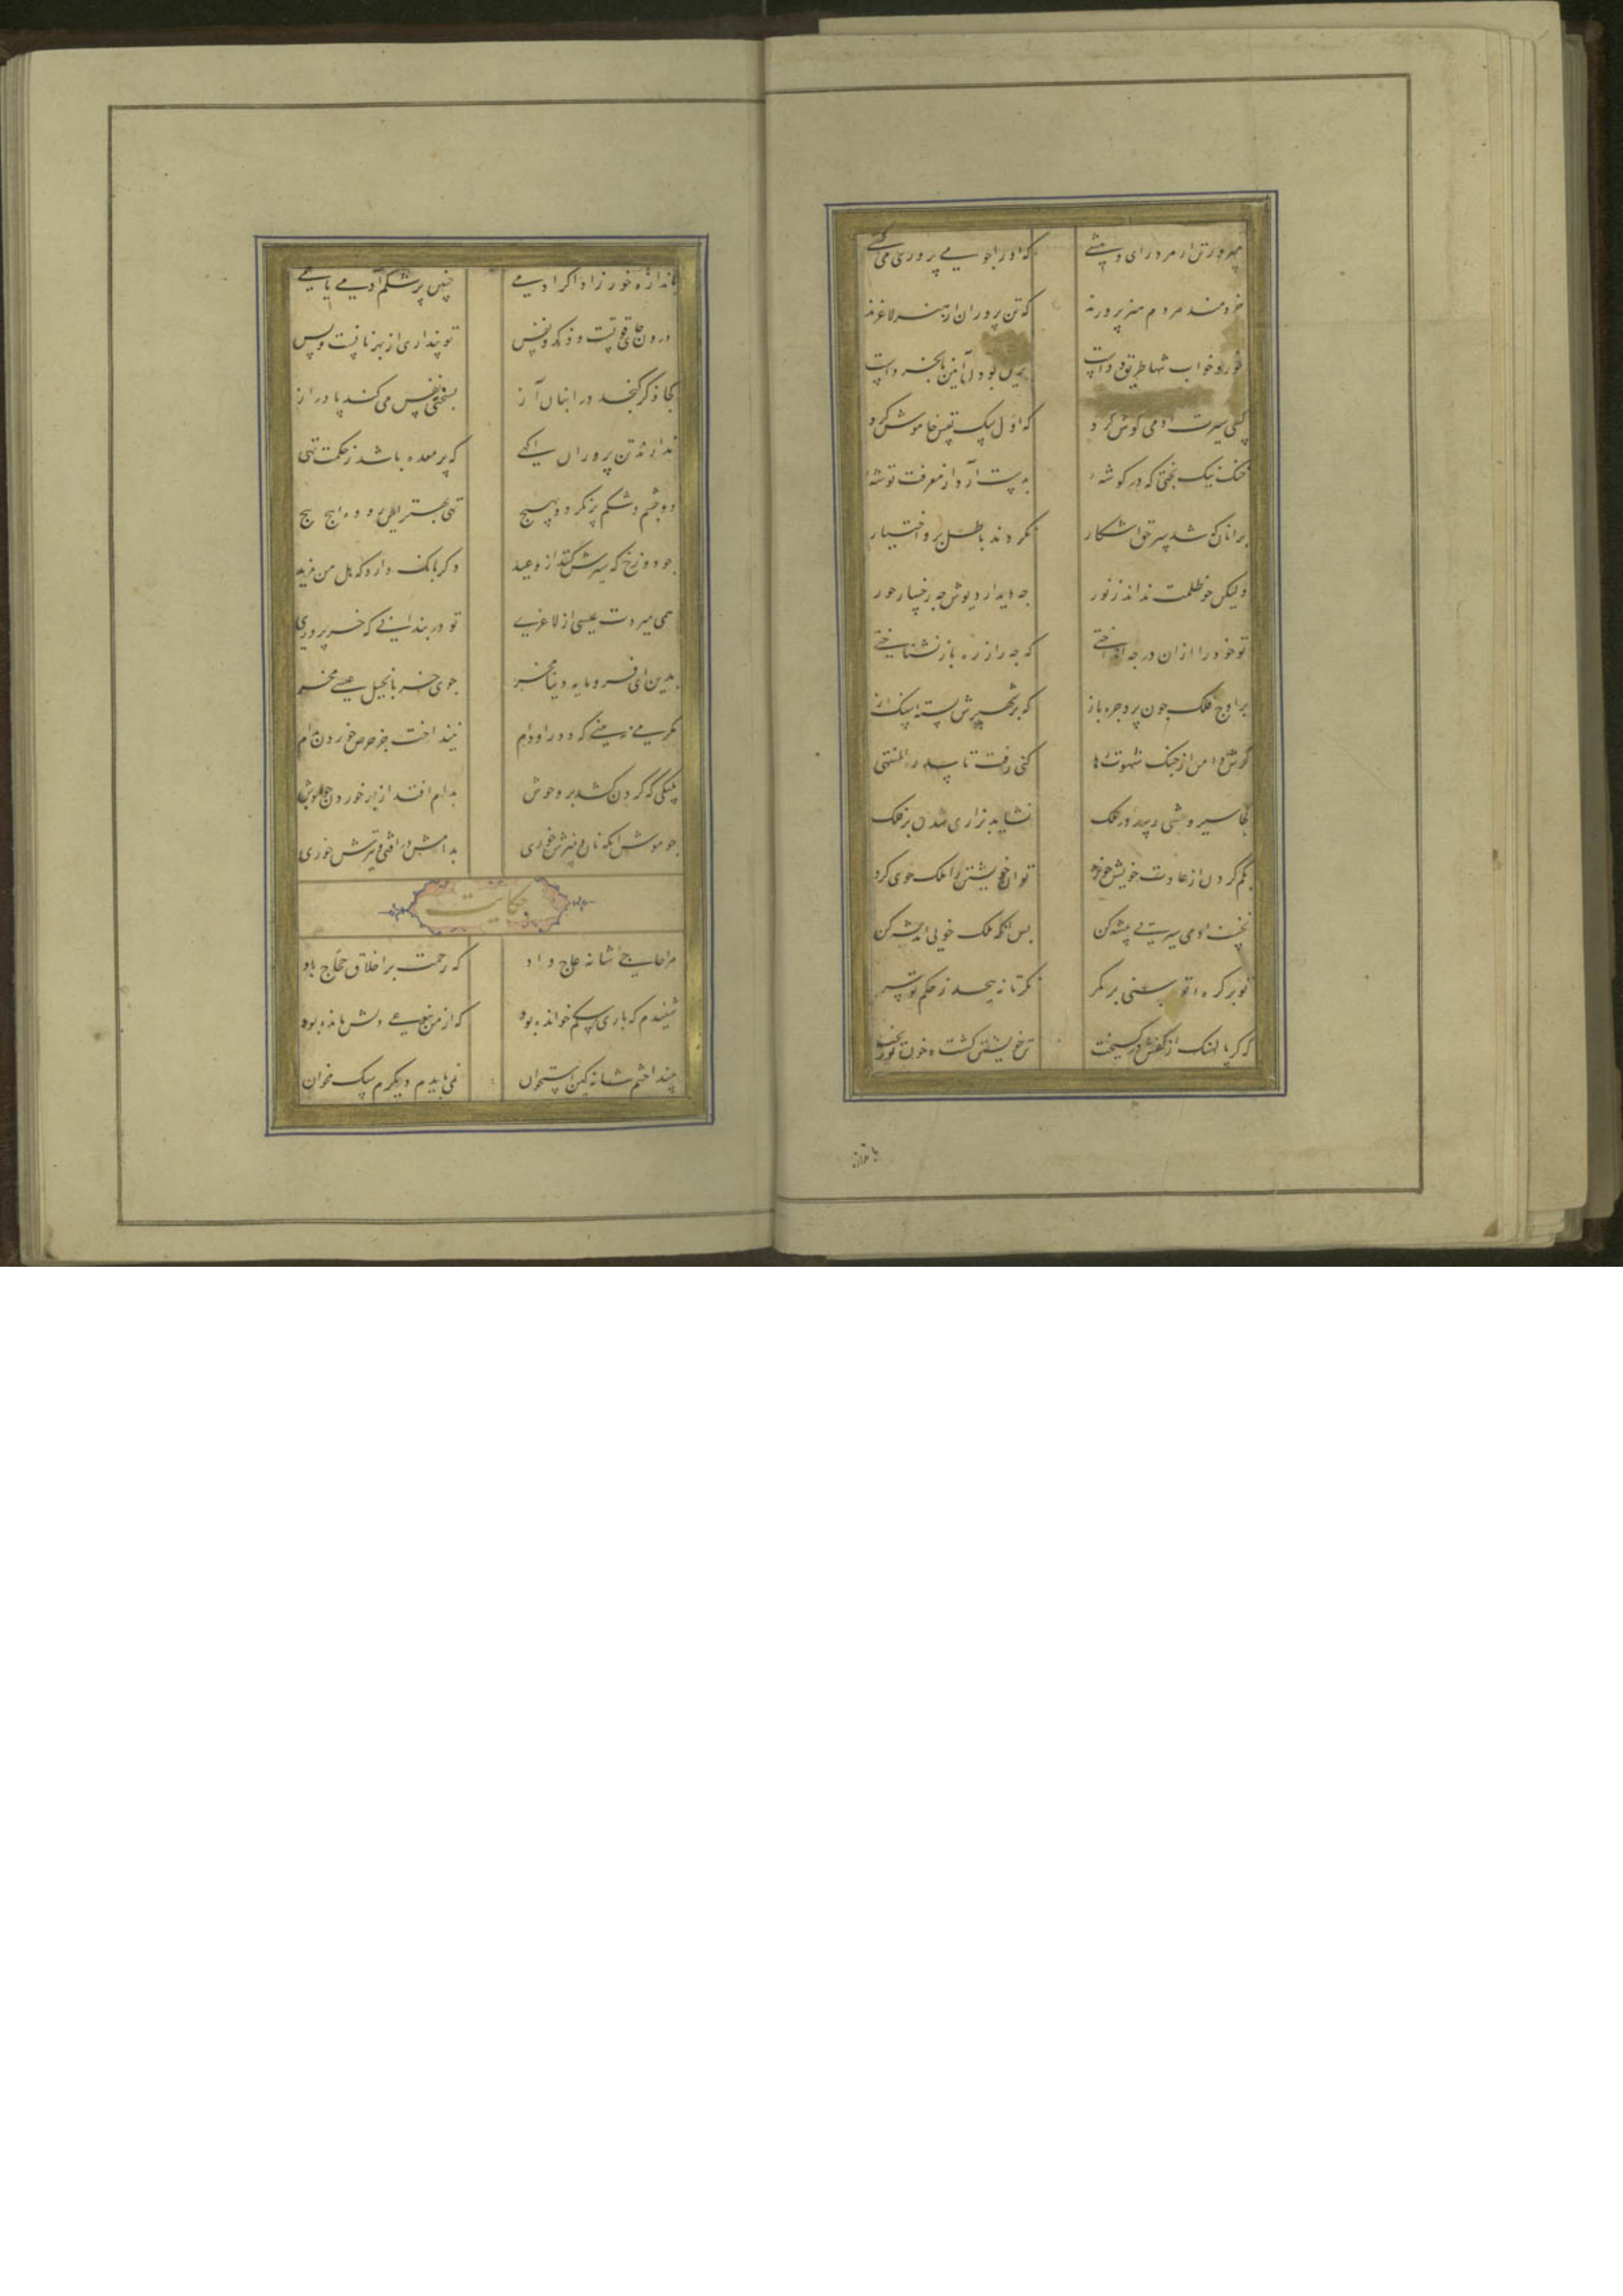 مپرور تن ار مرد رای و هشی که او را چو می پروری می کشی
خردمند مردم هنر پرورند که تن پروران از هنر لاغرند
خور و خواب تنها طریق ددست برین بودن آیین نابخردست
کسی سیرت ادمی کوش کرد که اول سک نفس خاموش کرد
خنک نیک بختی که در کوشه بدست آرد از معرفت توشه
برانان که شد سر حق اشکار نکردند باطل برو اختیار
ولیکن جو ظلمت نداند ز نور جه دیدار دیوش جه رخسار حور
تو خود را ازان در جه انداختی که جه را ز ره باز نشناختی
بر اوج فلک جون پرد جره باز که بر شهپرش بسته سنک از
کرش دامن از جنک شهوت رها کنی رفت تا سدرة المنتهی
کجا سیر وحشی رسد در ملک نشاید پرید از ثری بر فلک
بکم کردن از عادت خویش خورد توان خویشتن را ملک خوی کرد
نخست ادمی سیرتی پیشه کن بس انکه ملک خویی اندیشه کن
تو بر کره توسنی بر کمر نکر تا نپیجد ز حکم تو سر
که کر پالهنک از کفت در کسیخت تن خویشتن کشت و خونت بریخت
باندازه
باندازه خور زاد اکر ادمی چنین پر شکم آدمی یا خمی
درون جای قوتست و ذکر و نفس تو پنداری از بهر نانست و بس
کجا ذکر کنجد در انبان آز بسختی نفس می کند پا دراز
ندارند تن پروران آکهی که پر معده باشد ز حکمت تهی
دو جشم و شکم پر نکردد بهیج تهی بهتر این روده پیج پیج
جو دوزخ که سیرش کنند از وعید دکر بانک دارد که هل من مزید
همی میردت عیسی از لاغری تو در بند انی که خر پروری
بدین ای فرومایه دنیا مخر جو خر بانجیل عیسی مخر
مکر می نبینی که دد را و دام نینداخت جز حرص خوردن بدام
پلنکی که کردن کشد بر وحوش بدام افتد از بهر خوردن جو موش
جو موش انکه نان و پنیرش خوری بدامش در افتی و تیرش خوری
حکایت
مرا حاجیی شانه عاج داد که رحمت بر اخلاق حجاج باد
شنیدم که باری سکم خوانده بود که از من بنوعی دلش مانده بود
بینداختم شانه کین استخوان نمی بایدم دیکرم سک مخوان